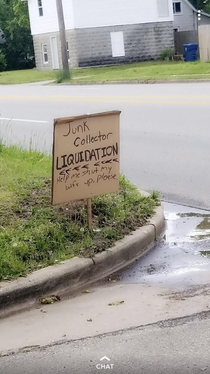 Junk
Collector
LIQUIDATION
Help me shut my
wife up, please
CHAT